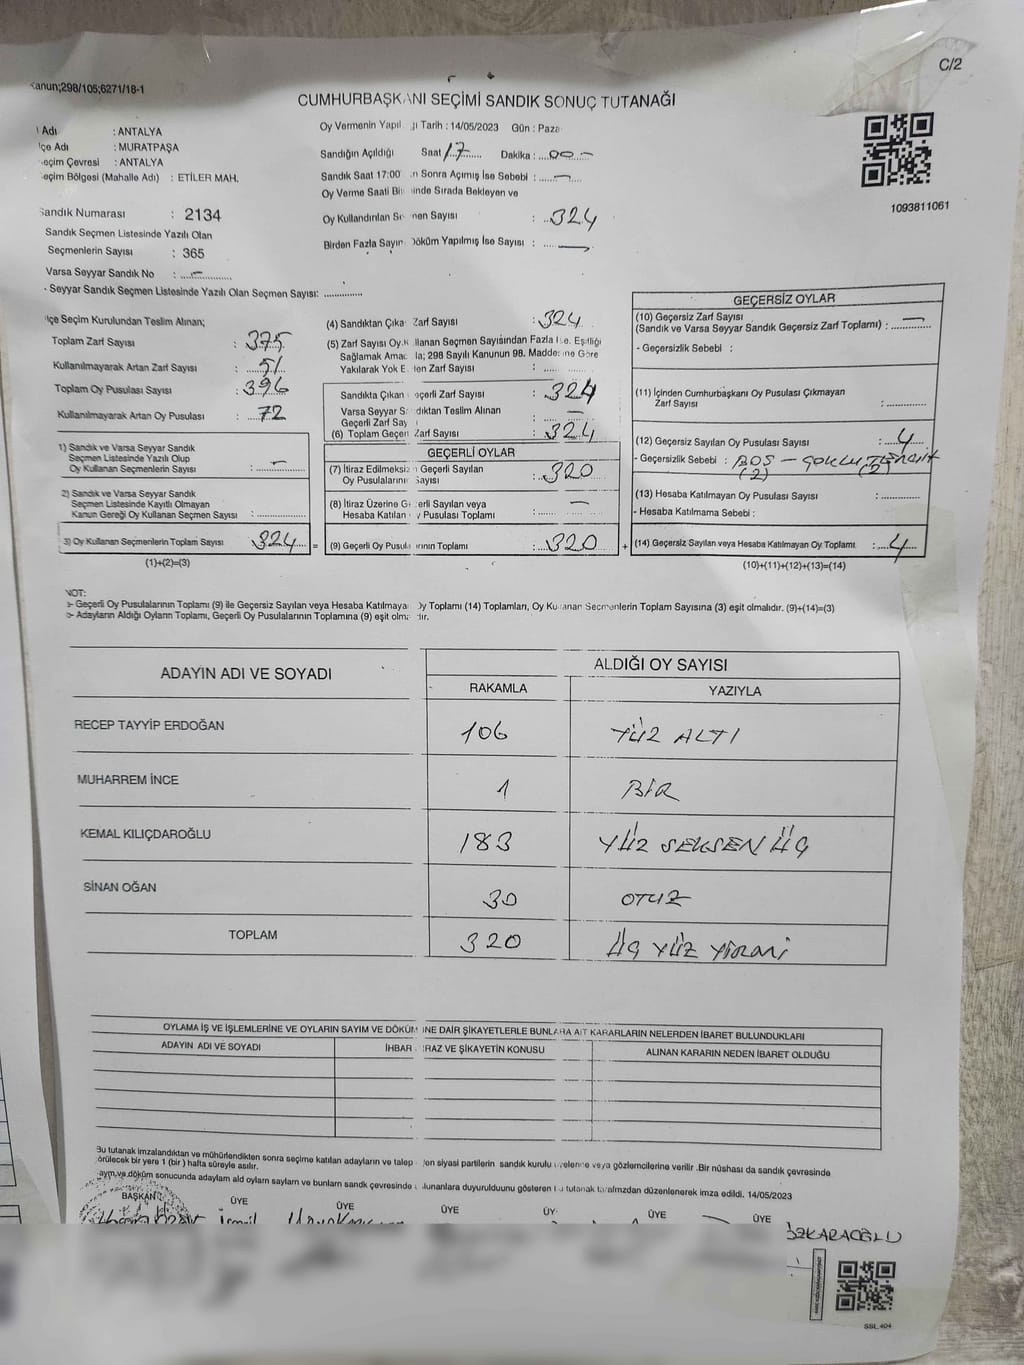 Kanun;298/105;6271/18-1
C/2
CUMHURBAŞKANI SEÇİMİ SANDIK SONUÇ TUTANAĞI
l Adı : ANTALYA
lçe Adı : MURATPAŞA
eçim Çevresi : ANTALYA
eçim Bölgesi (Mahalle Adı) : ETİLER MAH.
Sandık Numarası : 2134
Sandık Seçmen Listesinde Yazılı Olan
Seçmenlerin Sayısı : 365
Varsa Seyyar Sandık No : –
- Seyyar Sandık Seçmen Listesinde Yazılı Olan Seçmen Sayısı: ..............
Oy Vermenin Yapıl ğı Tarih : 14/05/2023 Gün : Paza
Sandığın Açıldığı Saat 17 Dakika : 00 –
Sandık Saat 17:00 n Sonra Açımış İse Sebebi : –
Oy Verme Saati Bi inde Sırada Bekleyen ve
Oy Kullandırılan Se men Sayısı : 324
Birden Fazla Sayın Döküm Yapılmış İse Sayısı : —
1093811061
lçe Seçim Kurulundan Teslim Alınan;
Toplam Zarf Sayısı : 375
Kullanılmayarak Artan Zarf Sayısı : 51
Toplam Oy Pusulası Sayısı : 396
Kullanılmayarak Artan Oy Pusulası : 72
1) Sandık ve Varsa Seyyar Sandık
Seçmen Listesinde Yazılı Olup
Oy Kullanan Seçmenlerin Sayısı : –
2) Sandık ve Varsa Seyyar Sandık
Seçmen Listesinde Kayıtlı Olmayan
Kanun Gereği Oy Kullanan Seçmen Sayısı : ..............
3) Oy Kullanan Seçmenlerin Toplam Sayısı : 324 =
(1)+(2)=(3)
(4) Sandıktan Çıka Zarf Sayısı : 324
(5) Zarf Sayısı Oy K llanan Seçmen Sayısından Fazla İse, Eşitliği
Sağlamak Amac la; 298 Sayılı Kanunun 98. Maddesine Göre
Yakılarak Yok E len Zarf Sayısı :
Sandıkta Çıkan eçerli Zarf Sayısı : 324
Varsa Seyyar S dıktan Teslim Alınan
Geçerli Zarf Say : —
(6) Toplam Geçer Zarf Sayısı : 324
GEÇERLİ OYLAR
(7) İtiraz Edilmeksiz n Geçerli Sayılan
Oy Pusulaların Sayısı : 320
(8) İtiraz Üzerine G erli Sayılan veya
Hesaba Katılan y Pusulası Toplamı : —
(9) Geçerli Oy Pusul arının Toplamı : 320 +
GEÇERSİZ OYLAR
(10) Geçersiz Zarf Sayısı
(Sandık ve Varsa Seyyar Sandık Geçersiz Zarf Toplamı) : —
- Geçersizlik Sebebi :
(11) İçinden Cumhurbaşkanı Oy Pusulası Çıkmayan
Zarf Sayısı : ..............
(12) Geçersiz Sayılan Oy Pusulası Sayısı : 4
- Geçersizlik Sebebi : BOŞ – ÇOKLU TERCİH
(2) (2)
(13) Hesaba Katılmayan Oy Pusulası Sayısı : ..............
- Hesaba Katılmama Sebebi :
(14) Geçersiz Sayılan veya Hesaba Katılmayan Oy Toplamı : 4
(10)+(11)+(12)+(13)=(14)
NOT:
a- Geçerli Oy Pusulalarının Toplamı (9) ile Geçersiz Sayılan veya Hesaba Katılmaya Oy Toplamı (14) Toplamları, Oy Kullanan Seçmenlerin Toplam Sayısına (3) eşit olmalıdır. (9)+(14)=(3)
b- Adayların Aldığı Oyların Toplamı, Geçerli Oy Pusulalarının Toplamına (9) eşit olma dır.
ADAYIN ADI VE SOYADI
ALDIĞI OY SAYISI
RAKAMLA YAZIYLA
RECEP TAYYİP ERDOĞAN 106 YÜZ ALTI
MUHARREM İNCE 1 BİR
KEMAL KILIÇDAROĞLU 183 YÜZ SEKSEN ÜÇ
SİNAN OĞAN 30 OTUZ
TOPLAM 320 ÜÇ YÜZ YİRMİ
OYLAMA İŞ VE İŞLEMLERİNE VE OYLARIN SAYIM VE DÖKÜM NE DAİR ŞİKAYETLERLE BUNLARA AİT KARARLARIN NELERDEN İBARET BULUNDUKLARI
ADAYIN ADI VE SOYADI İHBAR RAZ VE ŞİKAYETİN KONUSU ALINAN KARARIN NEDEN İBARET OLDUĞU
Bu tutanak imzalandıktan ve mühürlendikten sonra seçime katılan adayların ve talep den siyasi partilerin sandık kurulu üyelerine veya gözlemcilerine verilir. Bir nüshası da sandık çevresinde
örülecek bir yere 1 (bir) hafta süreyle asılır.
ayım ve döküm sonucunda adayların aldığı oyların sayıları ve bunların sandık çevresinde ulunanlara duyurulduğunu gösteren bu tutanak tarafımızdan düzenlenerek imza edildi. 14/05/2023
BAŞKAN ÜYE ÜYE ÜYE ÜY ÜYE ÜYE
İsmil
ÖZKARAOĞLU
SSL 404